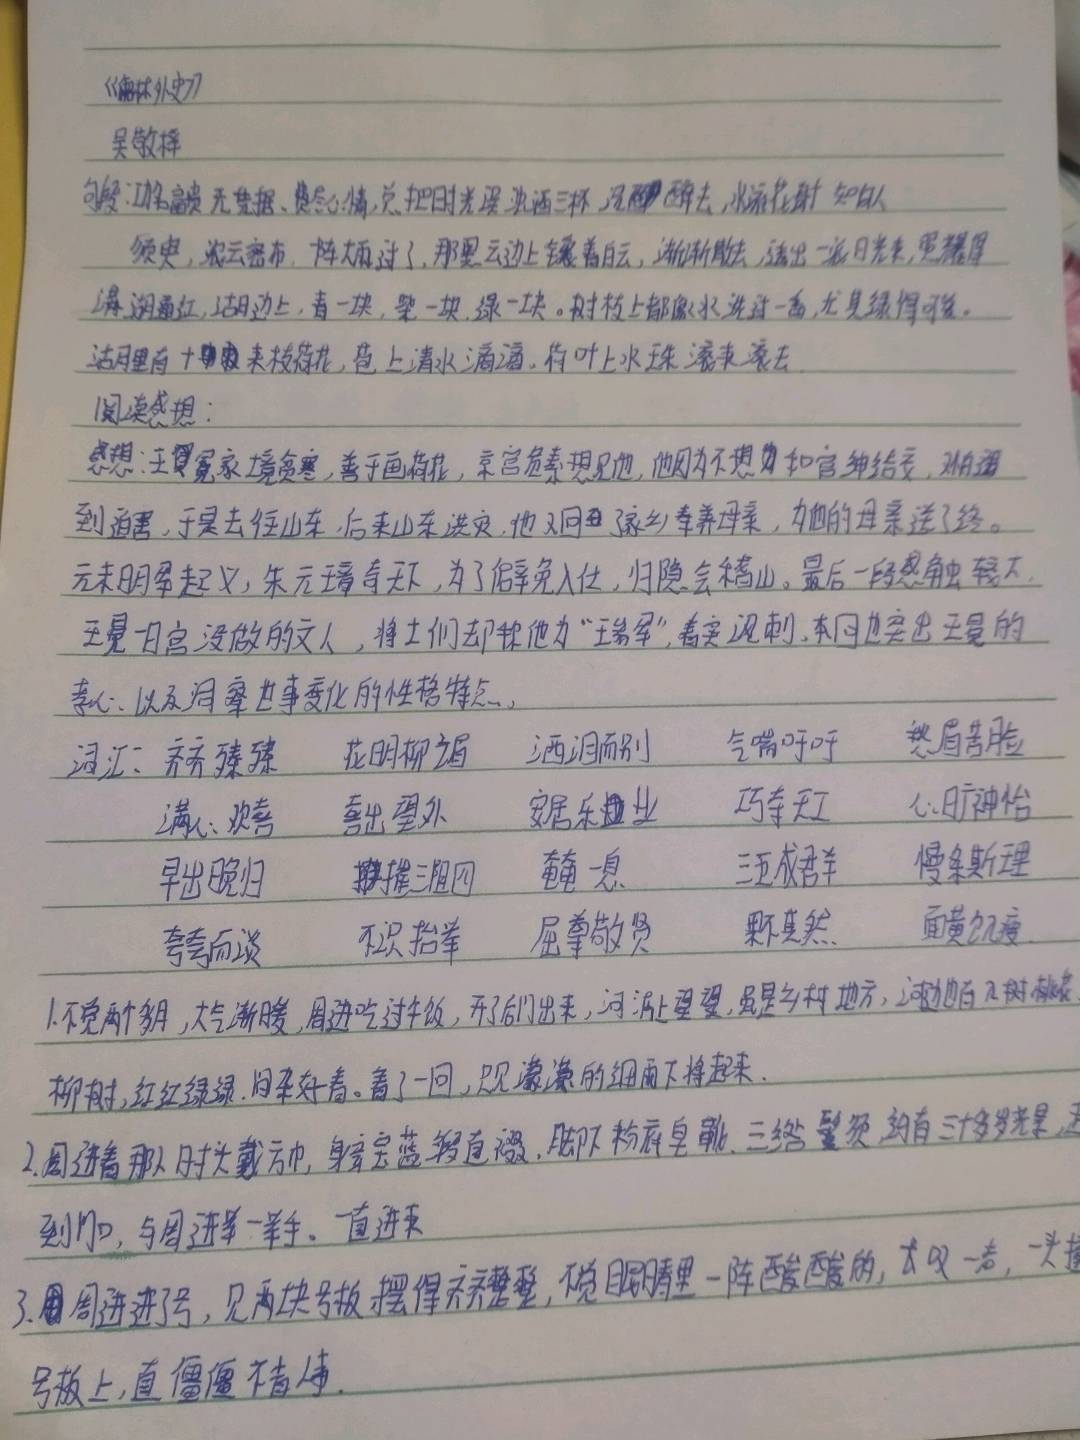 《儒林外史》
吴敬梓
句段:功名富贵无凭据、费尽心情,总把时光误 浊酒三杯 沉醉去,水流花谢 知何人
须臾,浓云密布,一阵大雨过了,那黑云边上镶着白云,渐渐散去,透出一派日光来,照耀得
满湖通红,湖边上,青一块,紫一块,绿一块。树枝上都像水洗过一番,尤其绿得可爱。
湖里有十来枝荷花,苞上清水滴滴,荷叶上水珠滚来滚去
阅读感想:
感想:王冕家境贫寒,善于画荷花,京官危素想见他,他因为不想和官绅结交,
到迫害,于是去往山东,后来山东洪灾,他又回了家乡奉养母亲,为他的母亲送了终。
元末明军起义,朱元璋夺天下,为了避免入仕,归隐会稽山。最后一段感触较大,
王冕一日官没做的文人,将士们却称他为"王参军",着实讽刺,本回也突出王冕的
孝心、以及洞察世事变化的性格特点。
词汇:齐齐臻臻 花明柳媚 洒泪而别 气喘吁吁 愁眉苦脸
满心欢喜 喜出望外 安居乐业 巧夺天工 心旷神怡
早出晚归 推三阻四 奄奄一息 三五成群 慢条斯理
夸夸而谈 不识抬举 屈尊敬贤 果不其然 面黄肌瘦
1.不觉两个多月,天气渐暖,周进吃过午饭,开了后门出来,河沿上望望,虽是乡村地方,河边也有几树桃花
柳树,红红绿绿,间杂好看。看了一回,只见濛濛的细雨下将起来.
2.周进看那人时头戴方巾,身穿宝蓝缎直裰,脚下粉底皂靴,三绺髭须,约有三十多岁光景,走
到门口,与周进举一举手。一直进来
3.周进进了号,见两块号板摆得齐齐整整,不觉眼睛里一阵酸酸的,长叹一声,一头撞
号板上,直僵僵不省人事.